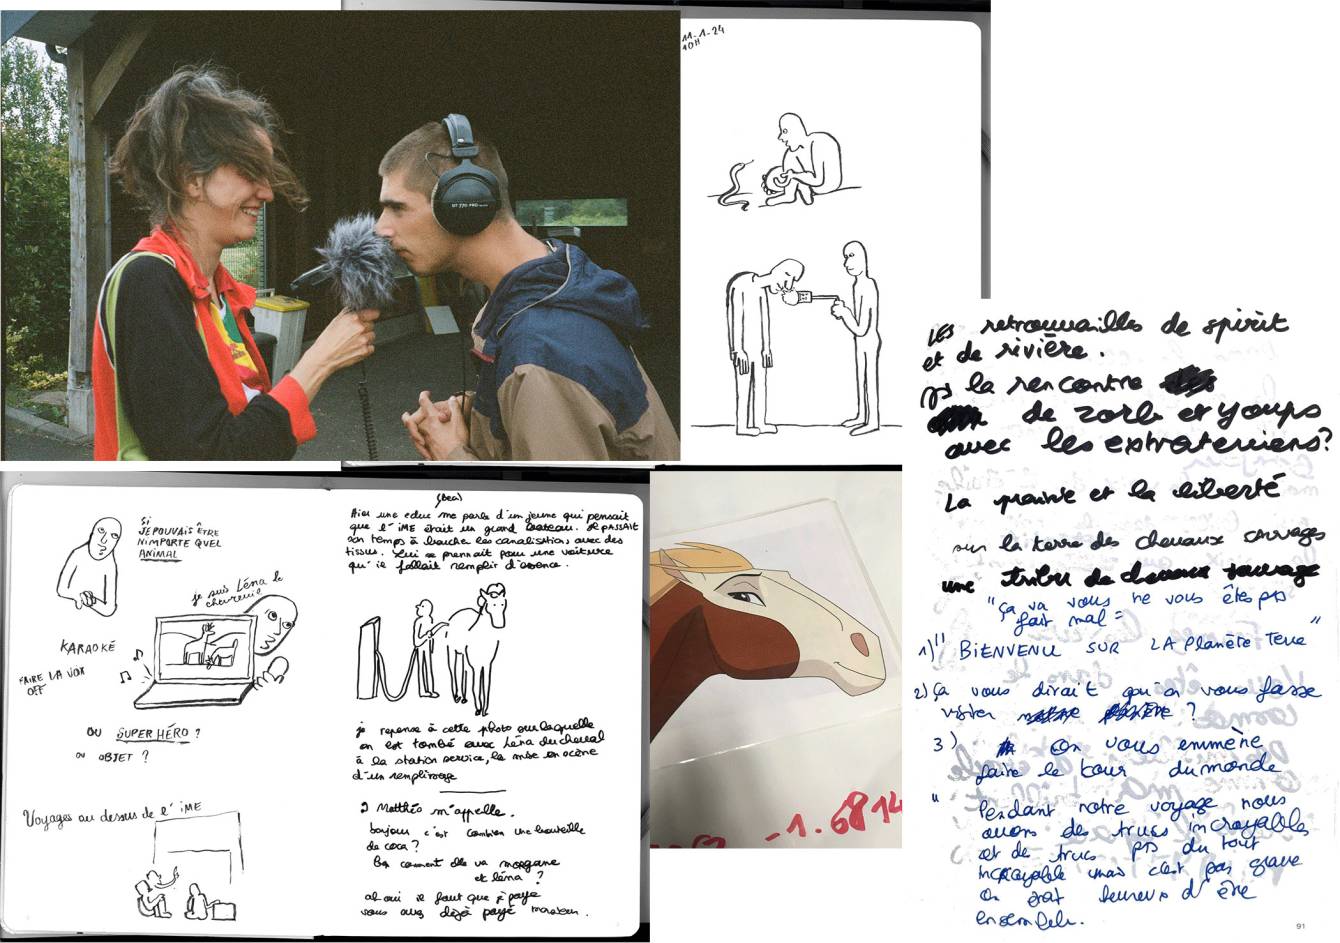 11-1-24
10H
DT 770 PRO
SI
JE POUVAIS ÊTRE
N'IMPORTE QUEL
ANIMAL
je suis Léna le
chevreuil
KARAOKÉ
FAIRE LA VOIX
OFF
OU SUPER HÉRO ?
OU OBJET ?
Voyages au dessus de l'IME
(Bea)
Hier une educ me parle d'un jeune qui pensait
que l'IME était un grand bateau. IL PASSAIT
son temps à boucher les canalisations avec des
tissus. Lui se prennait pour une voiture
qu'il fallait remplir d'essence.
je repense à cette photo sur laquelle
on est tombé avec Léna du cheval
à la station service, la mise en scène
d'un remplissage
Matthéo m'appelle.
bonjour c'est combien une bouteille
de coca ?
Bon comment elle va morgane
et léna ?
ah oui il faut que je paye
vous avez déjà payé
-1.6814
LES retrouvailles de spirit
et de rivière.
la rencontre
de zorb et youps
avec les extraterriens?
La prairie et la liberté
sur la terre des chevaux sauvages
une tribu de chevaux sauvage
"ça va vous ne vous êtes pas
fait mal "
1)" BIENVENU SUR LA Planète Terre "
2) ça vous dirait qu'on vous fasse
visiter notre planète ?
3) on vous emmène
faire le tour du monde
" Pendant notre voyage nous
avons des trucs incroyables
et de trucs pas du tout
incroyable mais c'est pas grave
on était heureux d'être
ensemble.
91